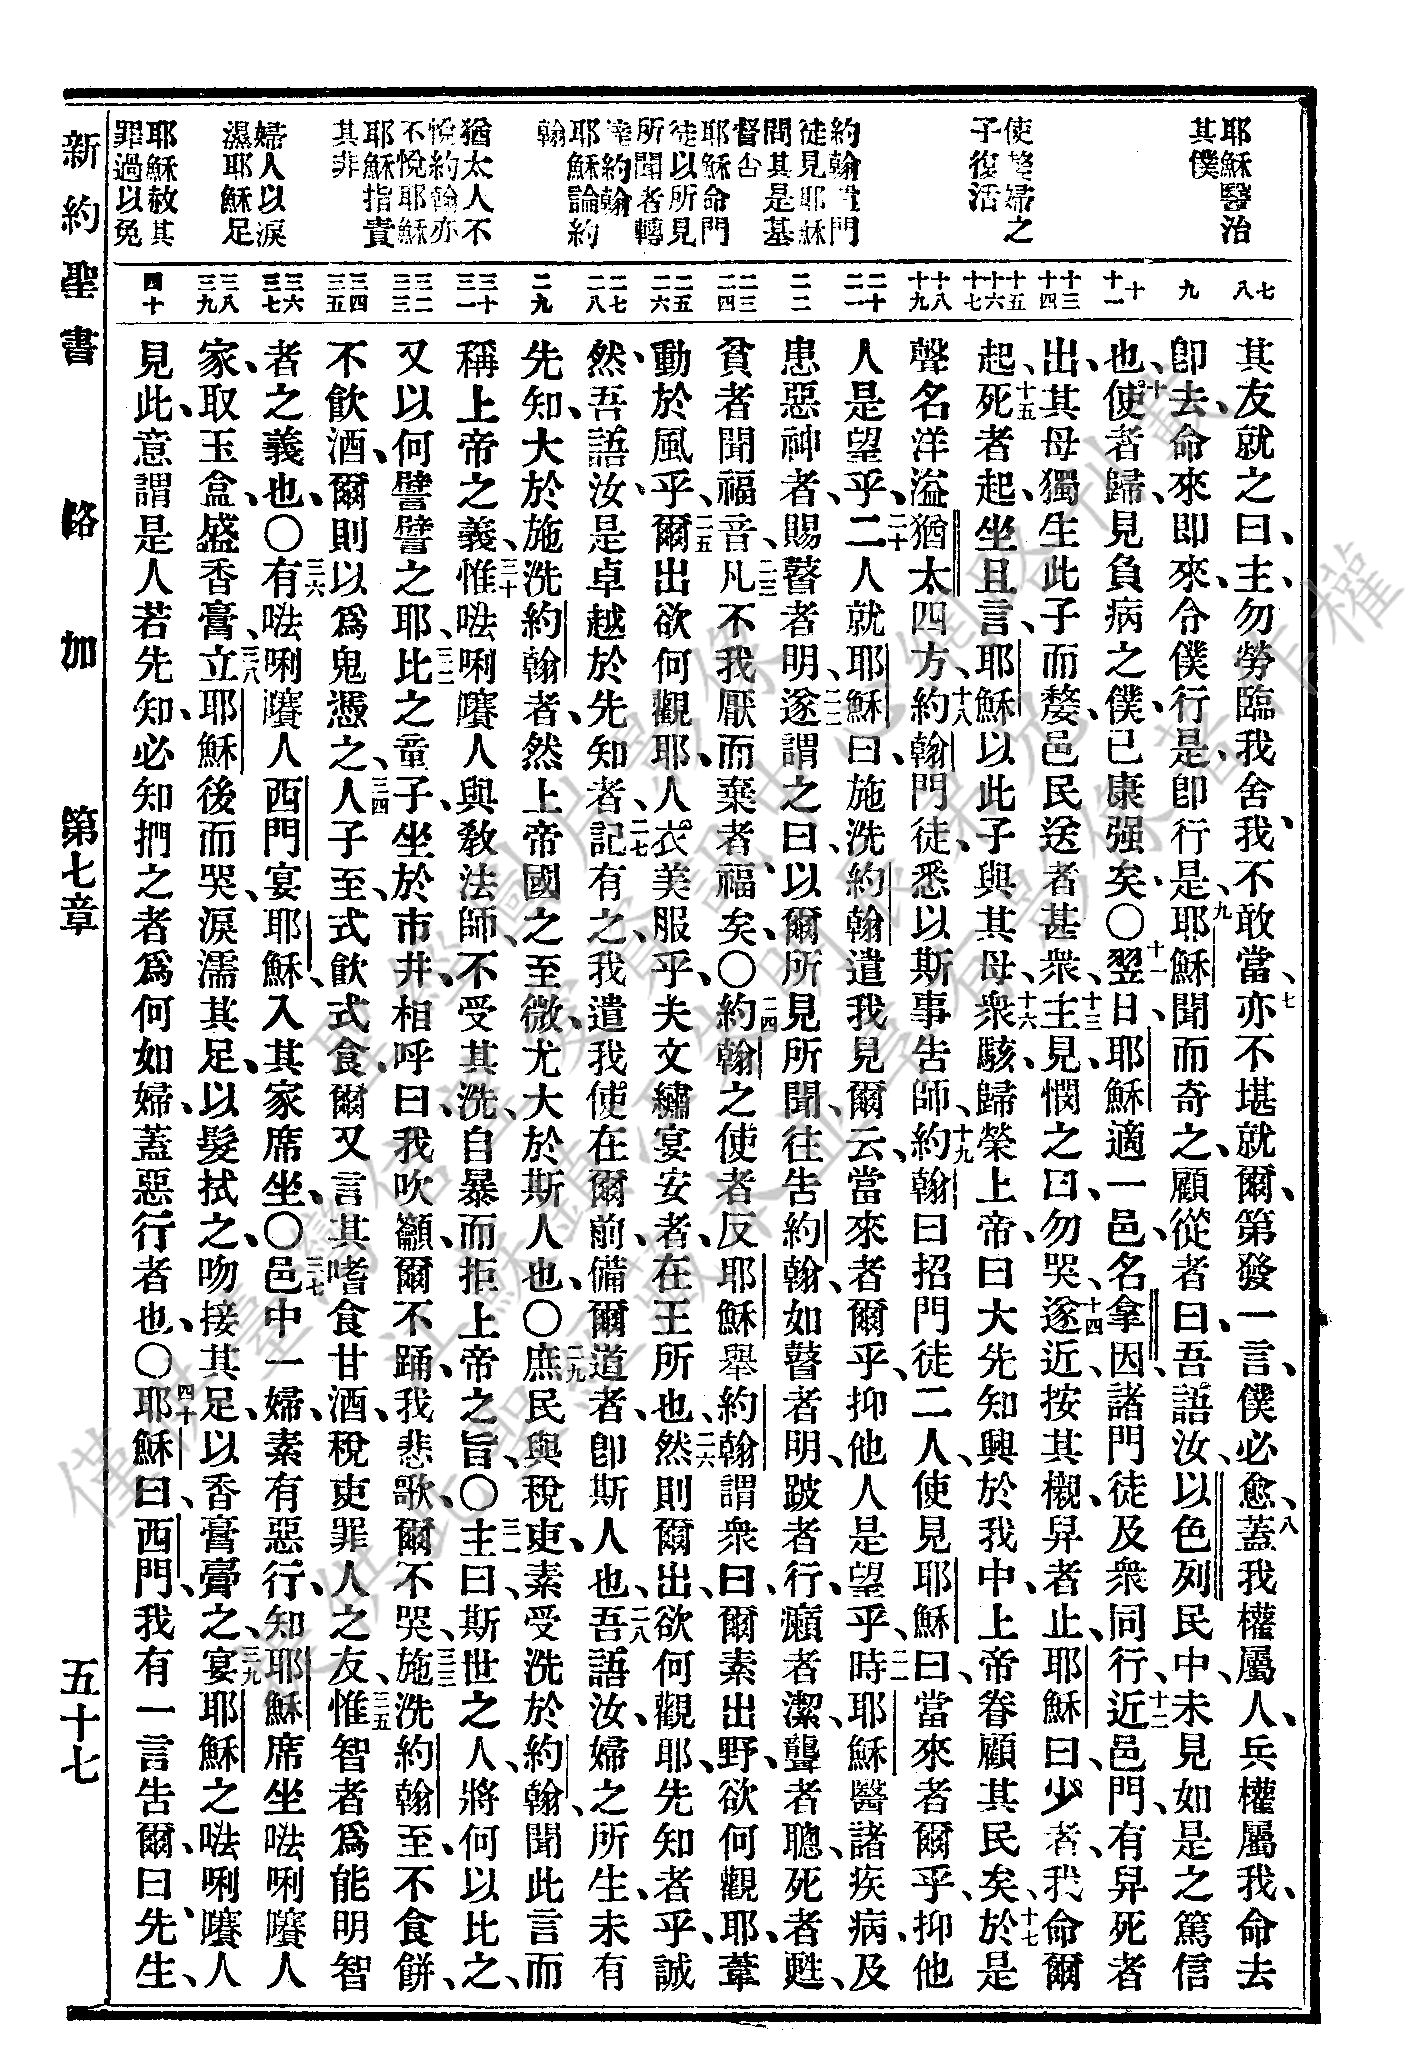 耶穌醫治
其僕
使嫠婦之
子復活
約翰遣門
徒見耶穌
問其是基
督否
耶穌命門
徒以所見
所聞者轉
達約翰
耶穌論約
翰
猶太人不
悅約翰亦
不悅耶穌
耶穌指責
其非
婦人以淚
濕耶穌足
耶穌赦其
罪過以免
七
八
九
十
十一
十三
十四
十五
十六
十七
十八
十九
二十
二一
二二
二三
二四
二五
二六
二七
二八
二九
三十
三一
三二
三三
三四
三五
三六
三七
三八
三九
四十
其友就之曰、主、勿勞臨我舍、我不敢當、七亦不堪就爾、第發一言、僕必愈、八蓋我權屬人、兵權屬我、命去
卽去、命來卽來、令僕行是、卽行是、九耶穌聞而奇之、顧從者曰、吾語汝、以色列民中、未見如是之篤信
也、十使者歸、見負病之僕、已康强矣、〇十一翌日、耶穌適一邑、名拿因、諸門徒及衆同行、十二近邑門、有舁死者
出、其母獨生此子而嫠、邑民送者甚衆、十三主見、憫之曰、勿哭、十四遂近、按其櫬、舁者止、耶穌曰、少者、我命爾
起、十五死者起、坐且言、耶穌以此子與其母、十六衆駭、歸榮上帝、曰大先知興於我中、上帝眷顧其民矣、十七於是
聲名洋溢猶太四方、十八約翰門徒、悉以斯事告師、十九約翰曰招門徒二人、使見耶穌曰、當來者爾乎、抑他
人是望乎、二十二人就耶穌曰、施洗約翰遣我見爾云、當來者爾乎、抑他人是望乎、二一時耶穌醫諸疾病、及
患惡神者、賜瞽者明、二二遂謂之曰、以爾所見所聞、往告約翰、如瞽者明、跛者行、癩者潔、聾者聰、死者甦、
貧者聞福音、二三凡不我厭而棄者福矣、〇二四約翰之使者反、耶穌舉約翰謂衆曰、爾素出野、欲何觀耶、葦
動於風乎、二五爾出欲何觀耶、人衣美服乎、夫文繡宴安者、在王所也、二六然則爾出、欲何觀耶、先知者乎、誠
然、吾語汝、是卓越於先知者、二七記有之、我遣我使、在爾前、備爾道者、卽斯人也、二八吾語汝、婦之所生、未有
先知、大於施洗約翰者、然上帝國之至微、尤大於斯人也、〇二九庶民與稅吏、素受洗於約翰、聞此言而
稱上帝之義、三十惟𠵽唎㘔人與敎法師、不受其洗、自暴而拒上帝之旨、〇三一主曰、斯世之人、將何以比之、
又以何譬譬之耶、三二比之童子、坐於市井、相呼曰、我吹籲、爾不踊、我悲歌、爾不哭、三三施洗約翰至、不食餅、
不飮酒、爾則以爲鬼憑之、三四人子至、式飮式食、爾又言其嗜食甘酒、稅吏罪人之友、三五惟智者爲能明智
者之義也、〇三六有𠵽唎㘔人西門、宴耶穌、入其家席坐、〇三七邑中一婦、素有惡行、知耶穌席坐𠵽唎㘔人
家、取玉盒、盛香膏、三八立耶穌後而哭、淚濡其足、以髮拭之、吻接其足、以香膏膏之、三九宴耶穌之𠵽唎㘔人
見此、意謂是人若先知、必知捫之者爲何如婦、蓋惡行者也、〇四十耶穌曰、西門、我有一言告爾、曰、先生、
新約聖書　路加　第七章　五十七